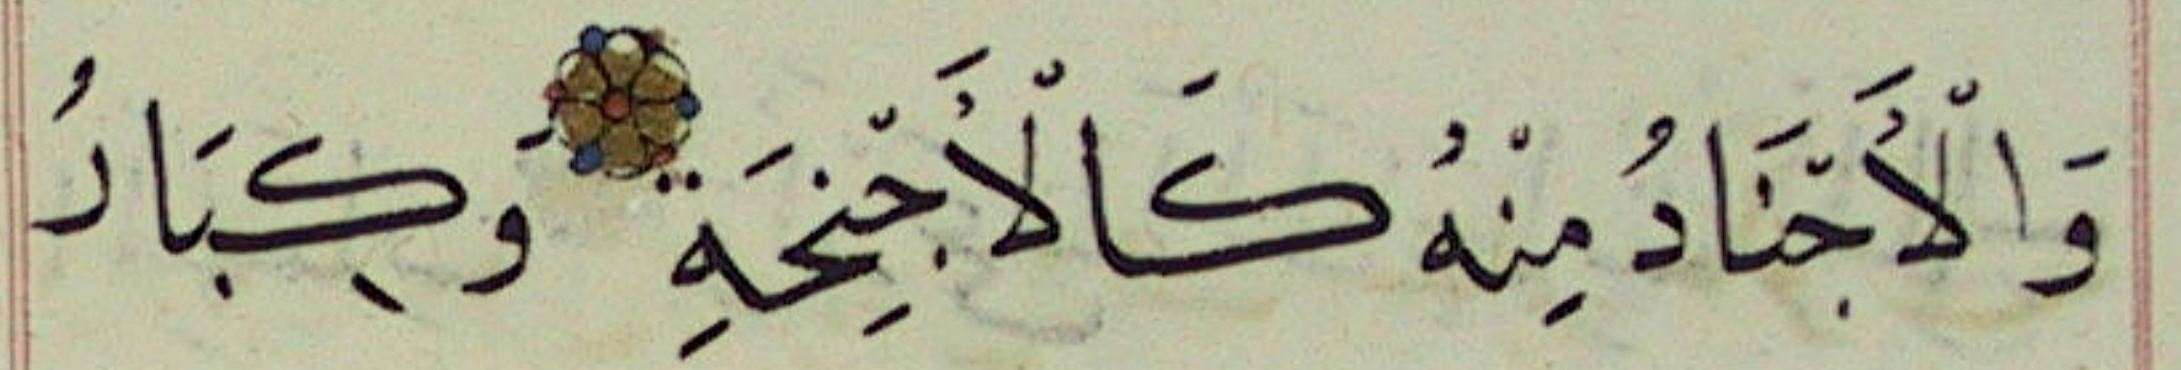 وَالْأَجْنَادُ مِنْهُ كَالْأَجْنِحَةِ وَكِبَارُ